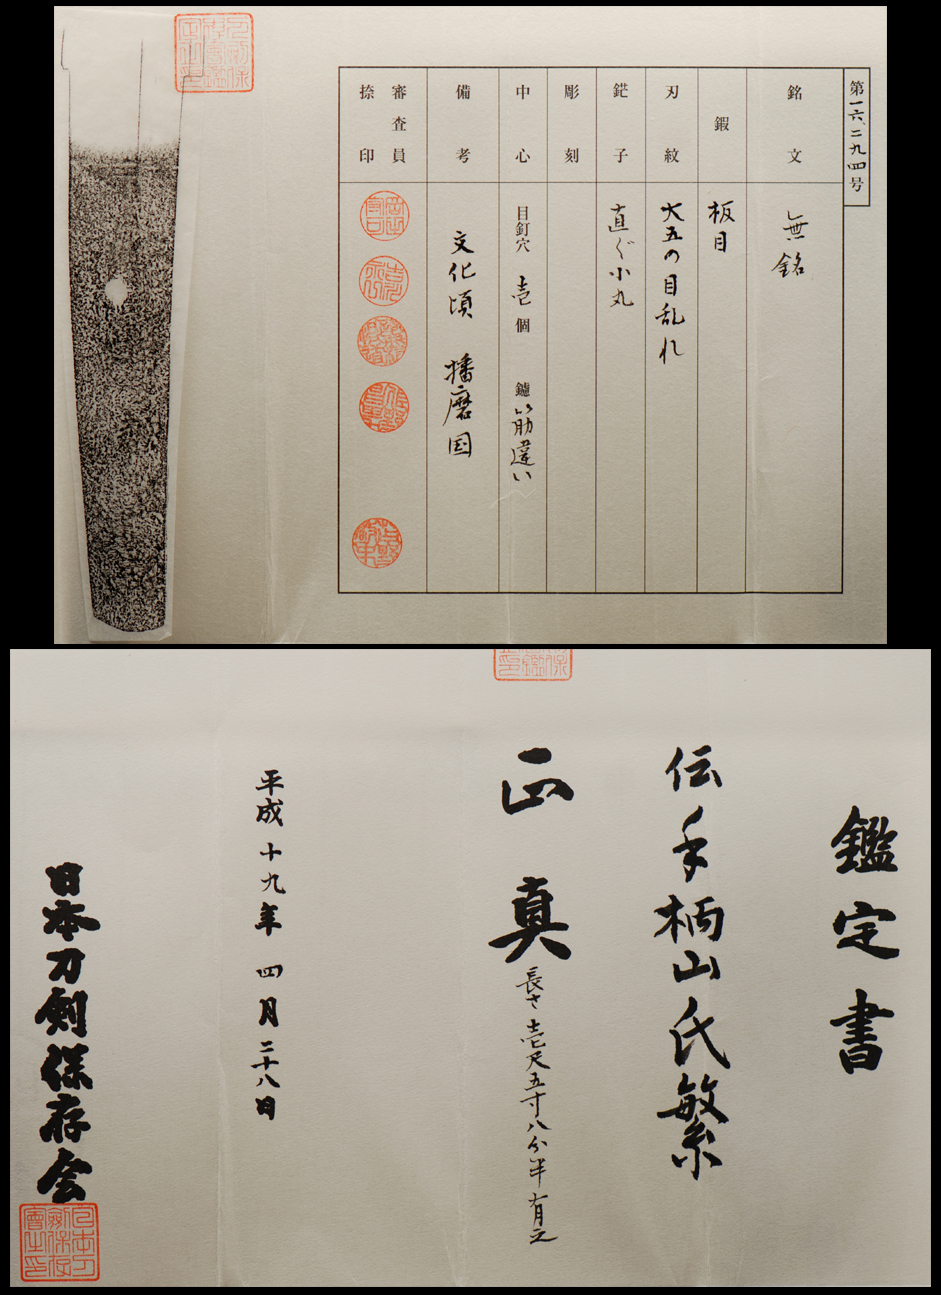 第一六、二九四号
銘文
無銘
鍜
板目
刃紋
大五の目乱れ
鋩子
直ぐ小丸
彫刻
中心
目釘穴 壱個 鑢 筋違い
備考
文化頃 播磨国
審査員
捺印
鑑定書
伝手柄山氏繁
正真
長さ壱尺五寸八分半有之
平成十九年四月二十八日
日本刀剣保存会